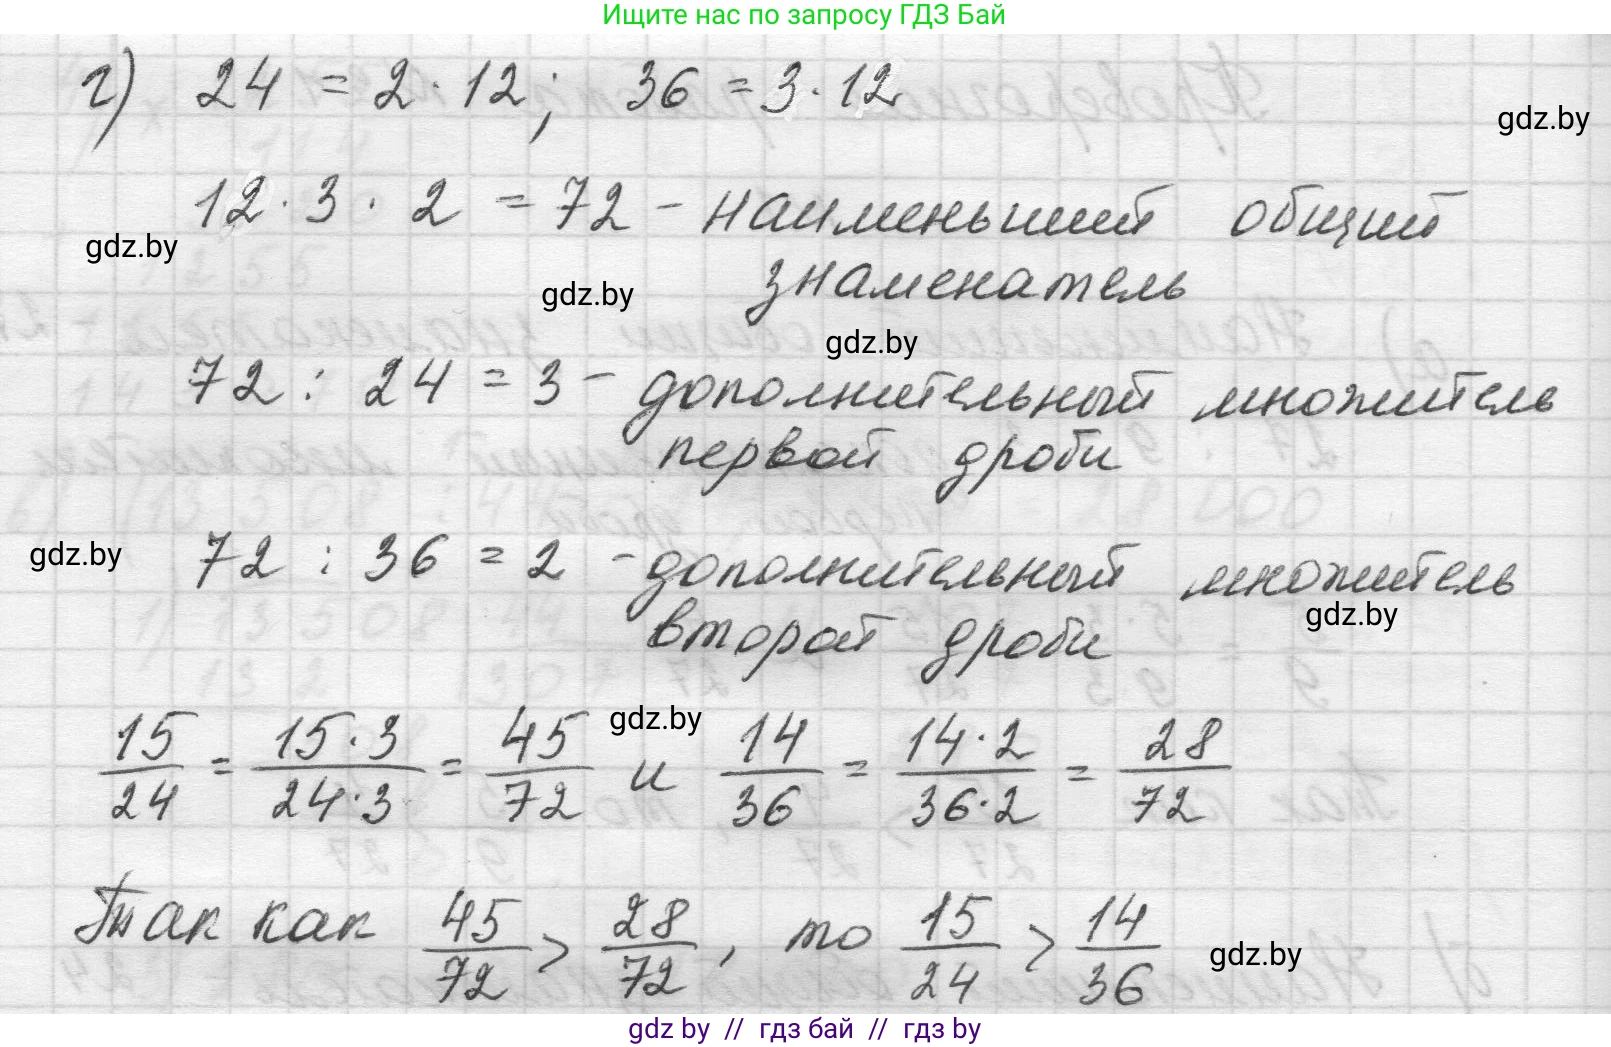 Ищите нас по запросу ГДЗ Бай
г) 24 = 2 · 12; 36 = 3 · 12
gdz.by
12 · 3 · 2 = 72 - наименьший общий
gdz.by
знаменатель
gdz.by
gdz.by
72 : 24 = 3 - дополнительный множитель
первой дроби
72 : 36 = 2 - дополнительный множитель
gdz.by
gdz.by
второй дроби
gdz.by
15/24 = 15·3/24·3 = 45/72 и 14/36 = 14·2/36·2 = 28/72
Так как 45/72 > 28/72, то 15/24 > 14/36
gdz.by
gdz by // гдз бай // гдз by